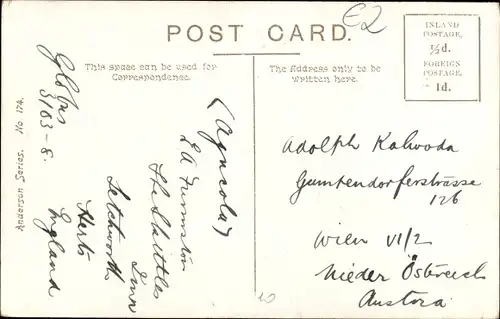 POST CARD.
£2
INLAND
POSTAGE,
½d.
FOREIGN
POSTAGE,
1d.
This space can be used for
Correspondence.
The Address only to be
written here.
Anderson Series. No. 174.
Globus
3163-8.
(Agricola)
The Skittles
Inn
Letchworth
Herts
England
Adolph Kalwoda
Gumtendorferstrasse
126
Wien VI/2
Nieder Östreich
Austria
10